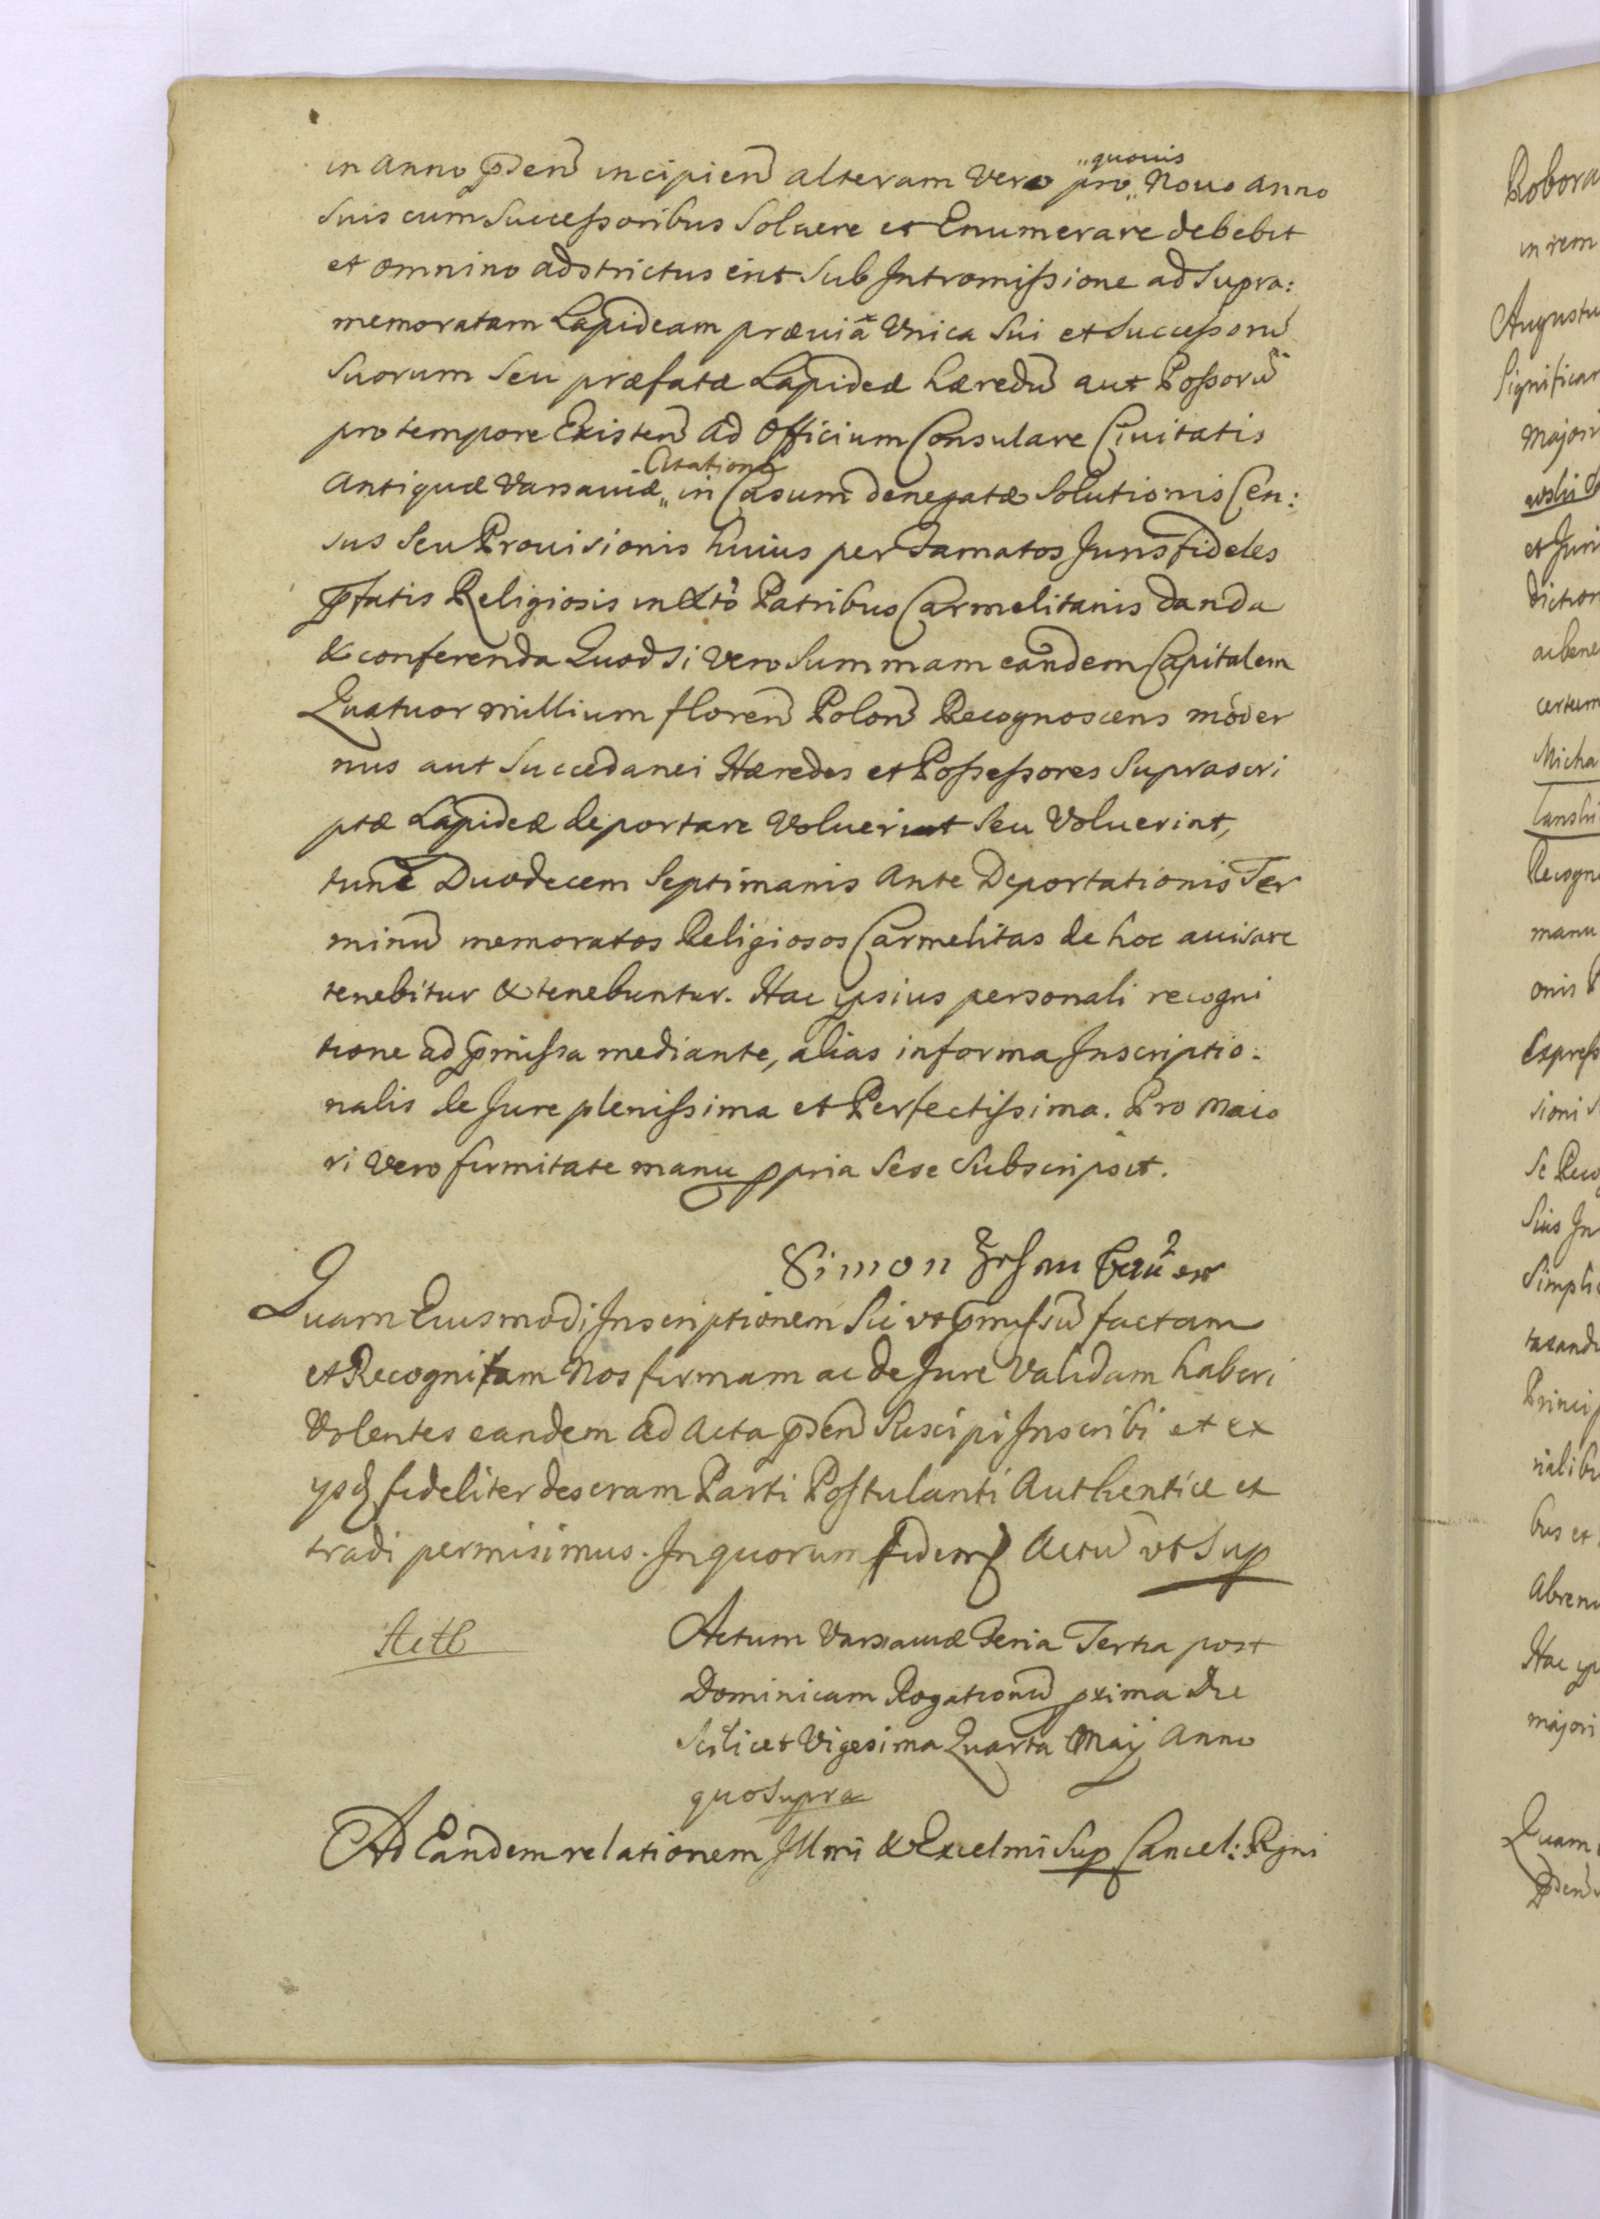 in Anno p̃sen̄ incipien̄ alteram Vero pro „quovis„ Novo Anno
suis cum Successoribus Solvere et Enumerare debebit
et omnino adstrictus erit Sub Intromissione ad Supra:
memoratam Lapideam præviâ Unica Sui et Successorū
Suorum Seu præfatæ Lapideæ hæredū aut Possorū
pro tempore Existen̄ ad Officium Consulare Civitatis
Antiquæ Varsaviæ „Citatione„ in Casum denegatæ Solutionis Cen:
sus Seu Provisionis huius per Famatos Juris fideles
p̃fatis Religiosis Patribus Carmelitanis danda
& conferenda Quod si Vero Summam eandem Capitalem
Quatuor millium floren̄ Polon̄ Recognoscens moder
nus aut Succedanei Hæredes et Possessores Suprascri
ptæ Lapideæ deportare Voluerit Seu Voluerint,
tunc Duodecem Septimanis Ante Deportationis Ter
minū memoratos Religiosos Carmelitas de hoc avisare
tenebitur & tenebuntur. Hac ipsius personali recogni
tione ad p̃missa mediante, alias in forma Inscriptio:
nalis de Jure plenissima et Perfectissima. Pro Maio
ri Vero firmitate manu ppria Sese Subscripsit.
Simon
Quam Eiusmodi Inscriptionem Sic ut p̃missū factam
et Recognitam Nos firmam ac de Jure Validam haberi
Volentes eandem ad Acta p̃sen̄ Suscipi Inscribi et ex
ysq fideliter descram Parti Postulanti Authentice et
tradi permisimus. In quorum fidem Actū ut Sup
Actum Varsaviæ Feria Tertia post
Dominicam Rogationū pxima die
Scilicet Vigesima Quarta Maij Anno
quo Supra
Ad Eandem relationem Illmi & Excelmi Sup Cancel: Rgni